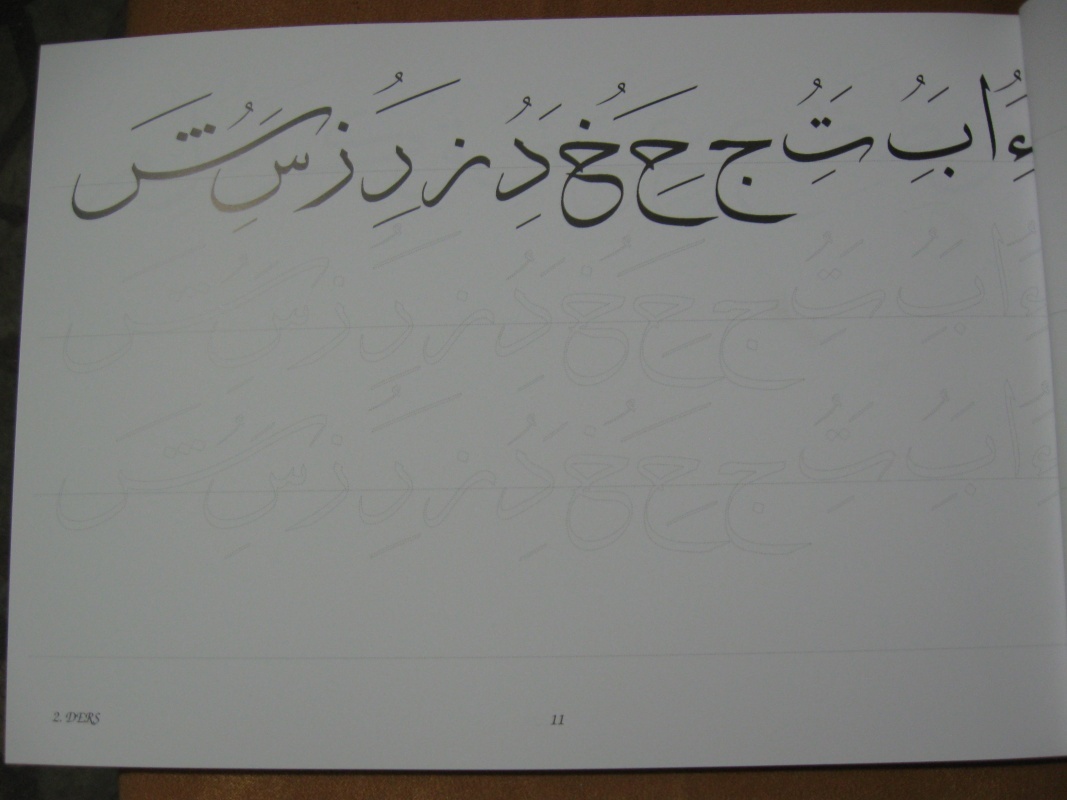 ءَُِ ا بَُِ تَُِ ج حَِ خَُ دَُِ ذ رَُِ ز سَُِ شَ
ءَُِ ا بَُِ تَُِ ج حَِ خَُ دَُِ ذ رَُِ ز سَُِ شَ
ءَُِ ا بَُِ تَُِ ج حَِ خَُ دَُِ ذ رَُِ ز سَُِ شَ
2. DERS 11